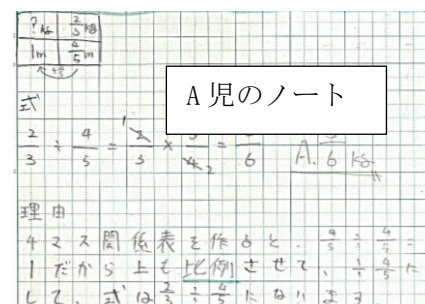 ? kg 2/3 kg
1m 4/5 m
A児のノート
式
2/3 ÷ 4/5 = 2/3 × 4 2 = 6 A. 6 kg
理由
4マス関係表を作ると、4/5 ÷ 4/5 =
1だから上も比例させて、÷ 4/5 に
して、式は 2/3 ÷ 4/5 になります